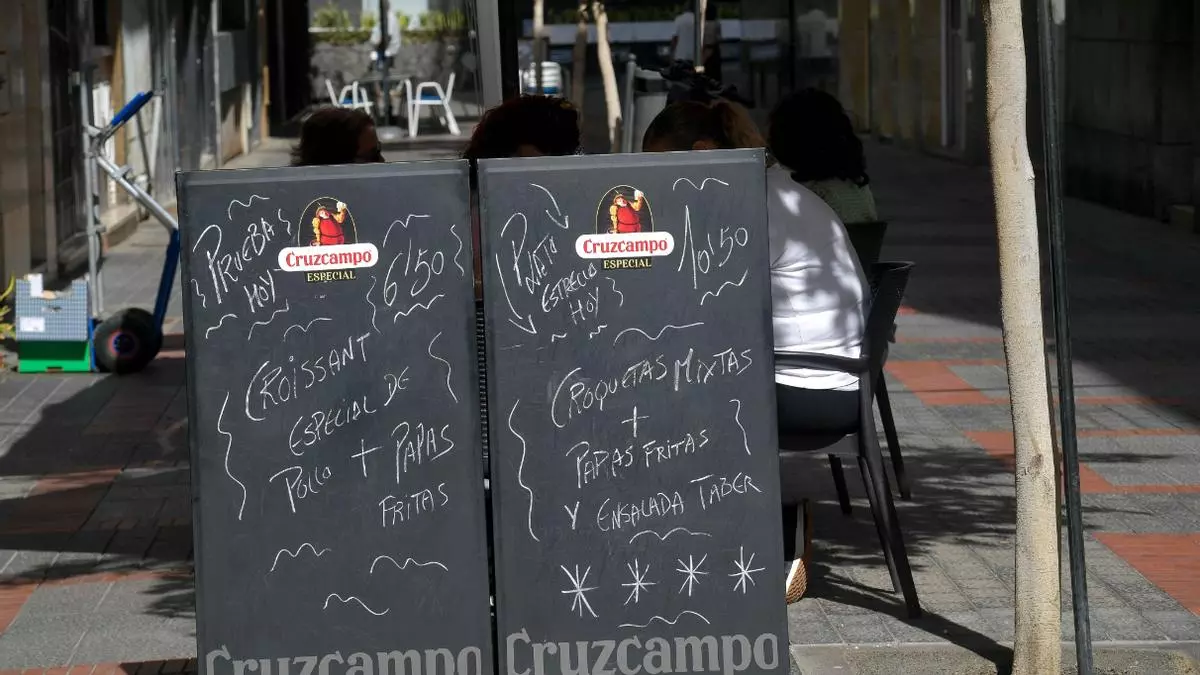 PRUEBA
HOY
Cruzcampo
ESPECIAL
6'50
CROISSANT
ESPECIAL DE
POLLO + PAPAS
FRITAS
Cruzcampo
PLATO
ESTRELLA
HOY
Cruzcampo
ESPECIAL
10'50
CROQUETAS MIXTAS
+
PAPAS FRITAS
Y ENSALADA TABER
Cruzcampo